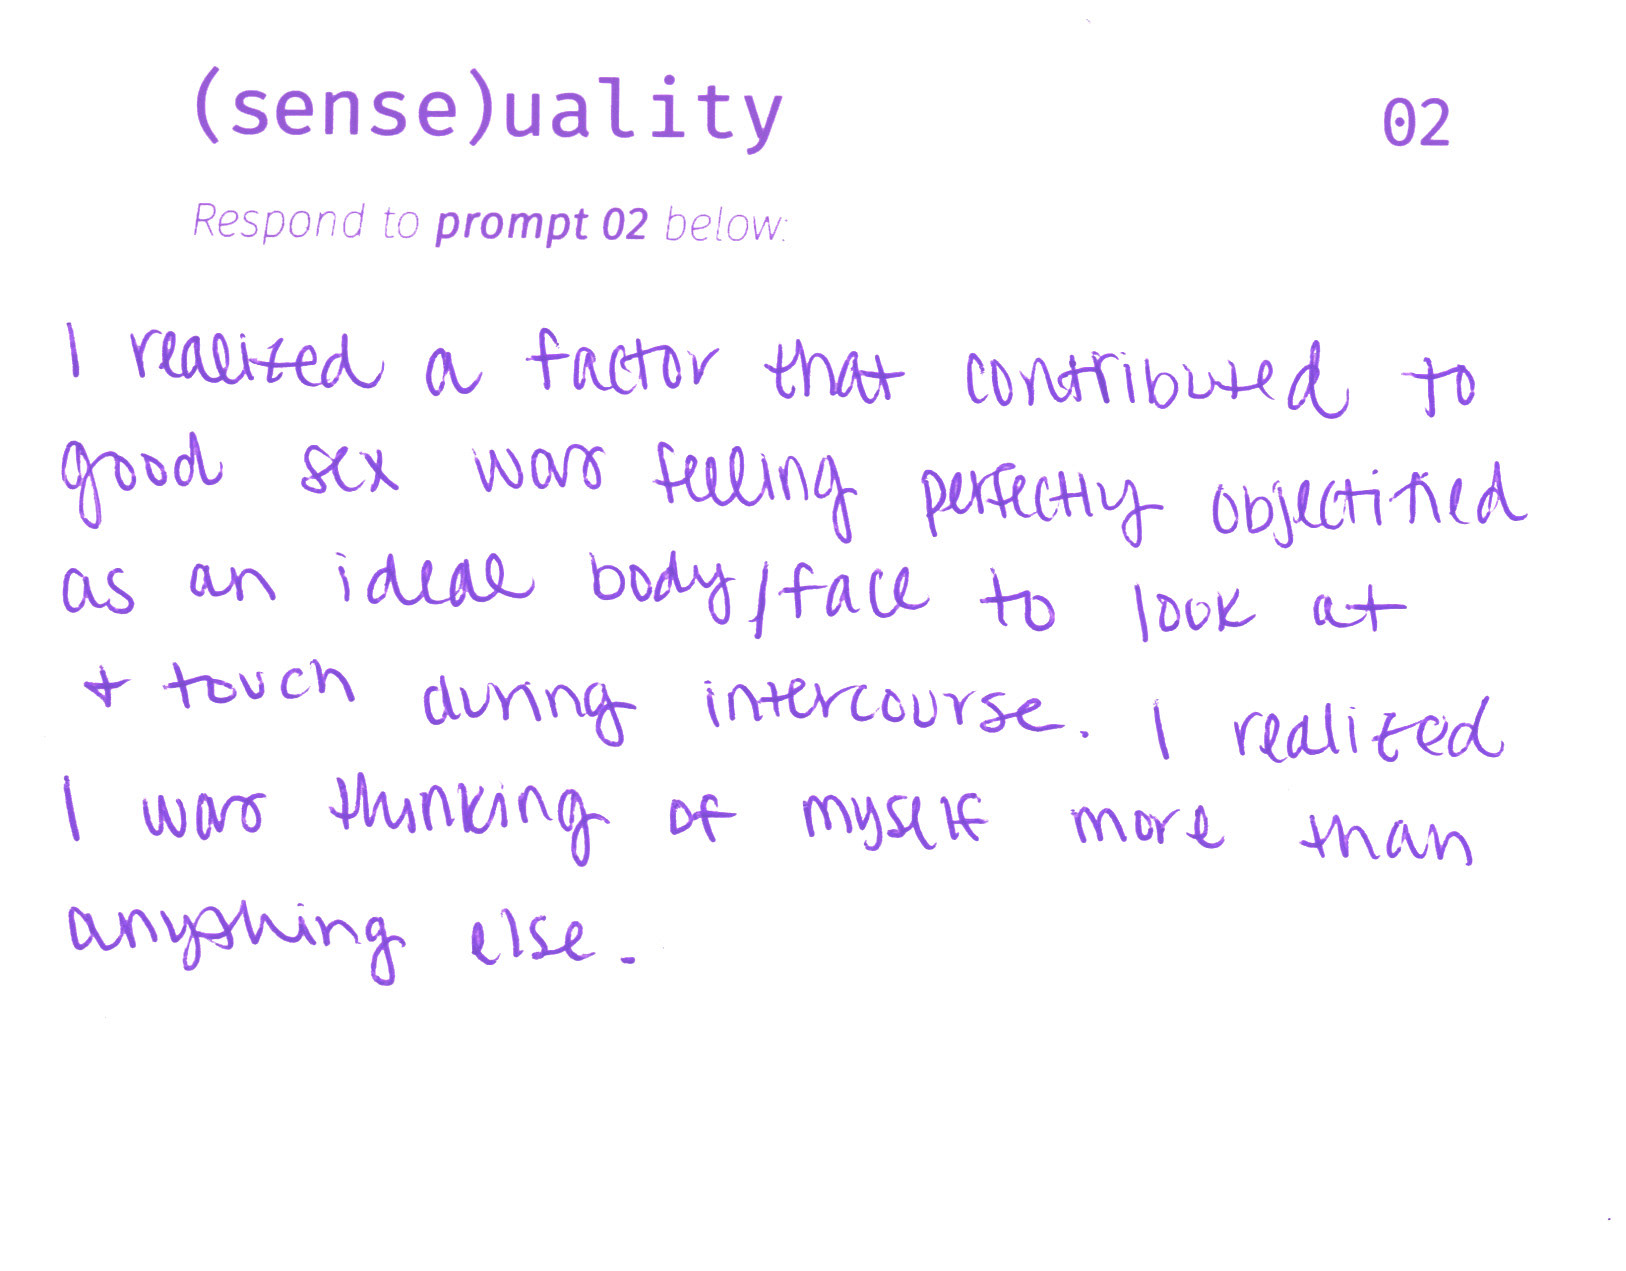 (sense)uality
02
Respond to prompt 02 below:
I realized a factor that contributed to
good sex was feeling perfectly objectified
as an ideal body/face to look at
+ touch during intercourse. I realized
I was thinking of myself more than
anything else.